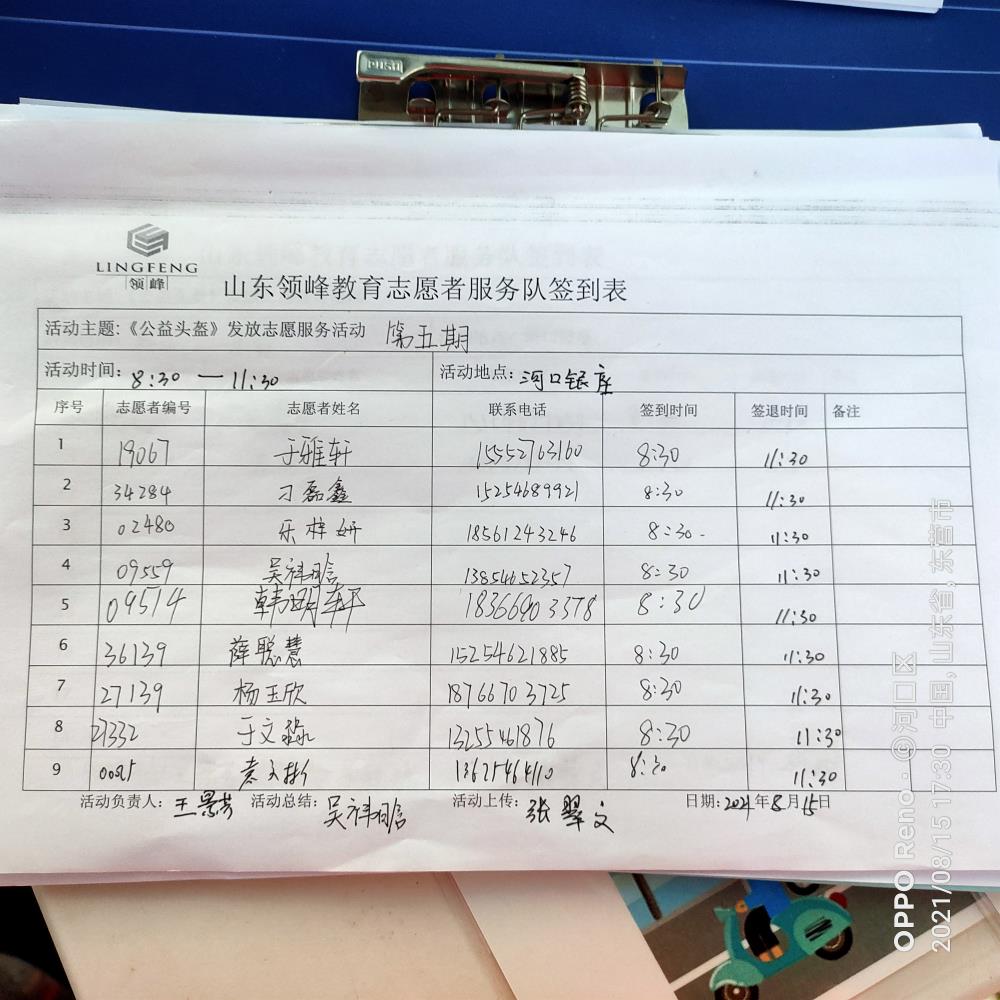 PUSH
LINGFENG
领峰
山东领峰教育志愿者服务队签到表
活动主题:《公益头盔》发放志愿服务活动 第五期
活动时间: 8:30 — 11:30 活动地点: 河口银座
序号 志愿者编号 志愿者姓名 联系电话 签到时间 签退时间 备注
1 19067 于雅轩 15552763160 8:30 11:30
2 34284 刁磊鑫 15254689921 8:30 11:30
3 02480 乐梓妍 18561243246 8:30 11:30
4 09559 13854652357 8:30 11:30
5 09514 韩明轩 18366903378 8:30 11:30
6 36139 薛聪慧 15254621885 8:30 11:30
7 27139 杨玉欣 18766703725 8:30 11:30
8 27332 于文淼 13255461876 8:30 11:30
9 13625464110 8:30 11:30
活动负责人: 王景芳 活动总结: 活动上传: 张翠文 日期: 2021年8月15日
OPPO Reno · @河口区
2021/08/15 17:30 中国, 山东省。东营市